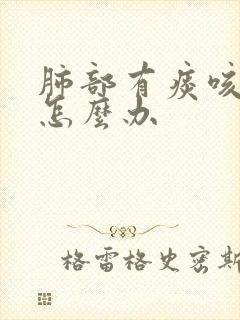 肺部有痰咳
怎麼办
格雷格史密斯